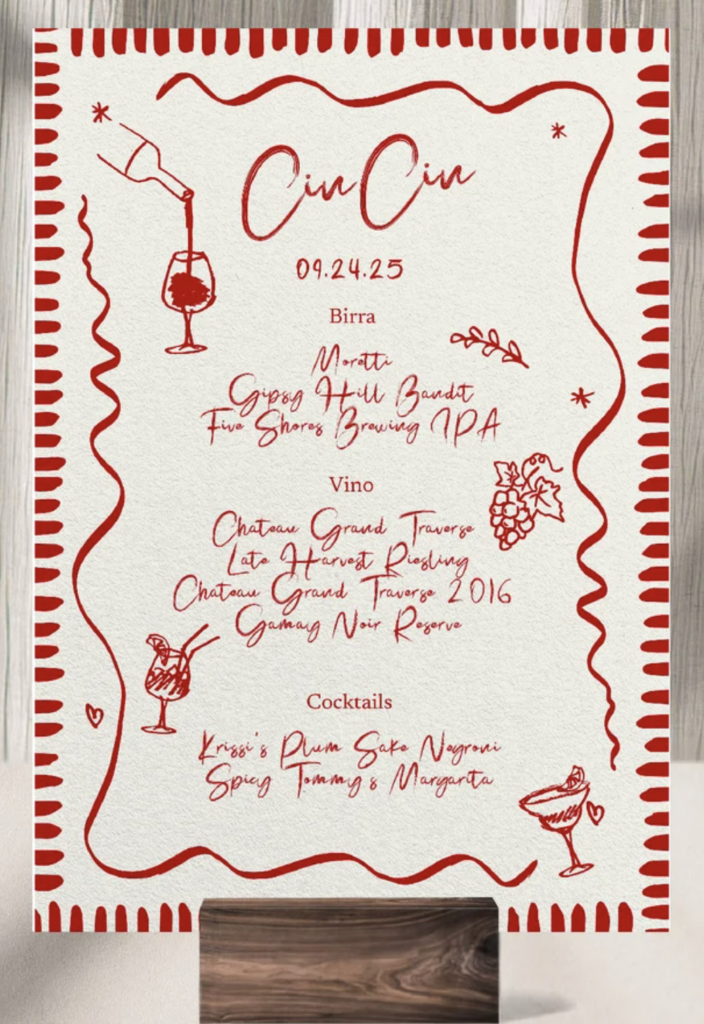 Cin Cin
09.24.25
Birra
Moretti
Gipsy Hill Bandit
Five Shores Brewing IPA
Vino
Chateau Grand Traverse
Late Harvest Riesling
Chateau Grand Traverse 2016
Gamay Noir Reserve
Cocktails
Krissi's Plum Sake Negroni
Spicy Tommy's Margarita